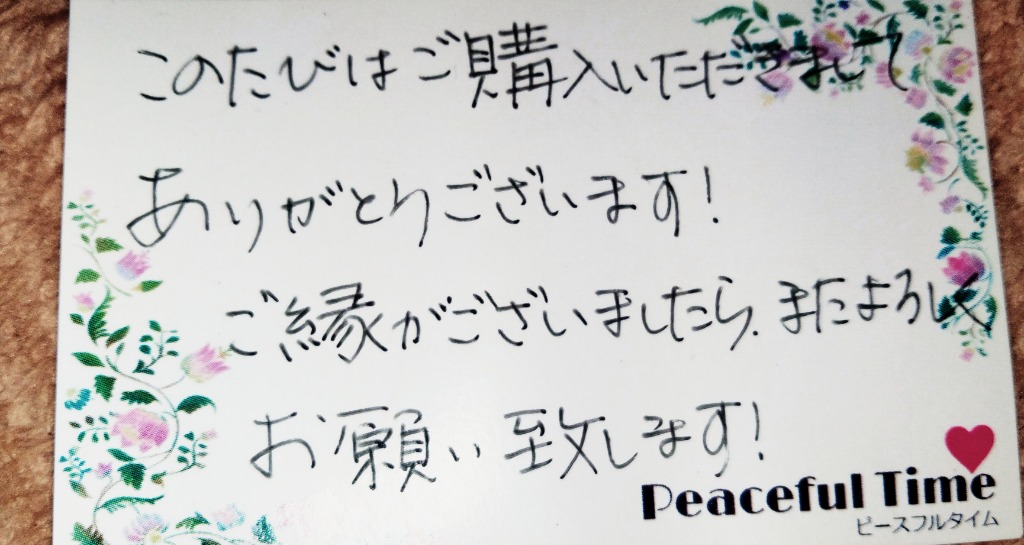 このたびはご購入いただきまして
ありがとうございます!
ご縁がございましたら、またよろしく
お願い致します!
Peaceful Time
ピースフルタイム